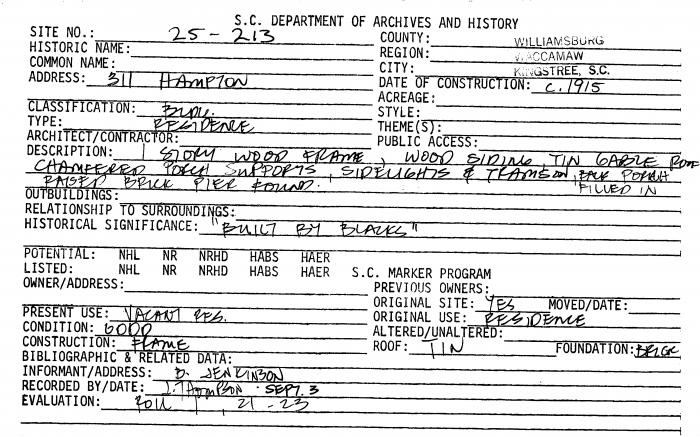 S.C. DEPARTMENT OF ARCHIVES AND HISTORY
SITE NO.: 25-213 COUNTY: WILLIAMSBURG
HISTORIC NAME: REGION: WACCAMAW
COMMON NAME: CITY: KINGSTREE, S.C.
ADDRESS: 311 HAMPTON DATE OF CONSTRUCTION: c. 1915
ACREAGE:
CLASSIFICATION: BLDG. STYLE:
TYPE: RESIDENCE THEME(S):
ARCHITECT/CONTRACTOR: PUBLIC ACCESS:
DESCRIPTION: 1 STORY WOOD FRAME, WOOD SIDING, TIN GABLE ROOF
CHAMFERED PORCH SUPPORTS, SIDELIGHTS & TRANSOM, BACK PORCH
RAISED BRICK PIER FOUND. FILLED IN
OUTBUILDINGS:
RELATIONSHIP TO SURROUNDINGS:
HISTORICAL SIGNIFICANCE: "BUILT BY BLACKS"
POTENTIAL: NHL NR NRHD HABS HAER
LISTED: NHL NR NRHD HABS HAER S.C. MARKER PROGRAM
OWNER/ADDRESS: PREVIOUS OWNERS:
ORIGINAL SITE: YES MOVED/DATE:
PRESENT USE: VACANT RES. ORIGINAL USE: RESIDENCE
CONDITION: GOOD ALTERED/UNALTERED:
CONSTRUCTION: FRAME ROOF: TIN FOUNDATION: BRICK
BIBLIOGRAPHIC & RELATED DATA:
INFORMANT/ADDRESS: B. JENKINSON
RECORDED BY/DATE: J. THOMPSON SEPT. 3
EVALUATION: ROLL 21-23